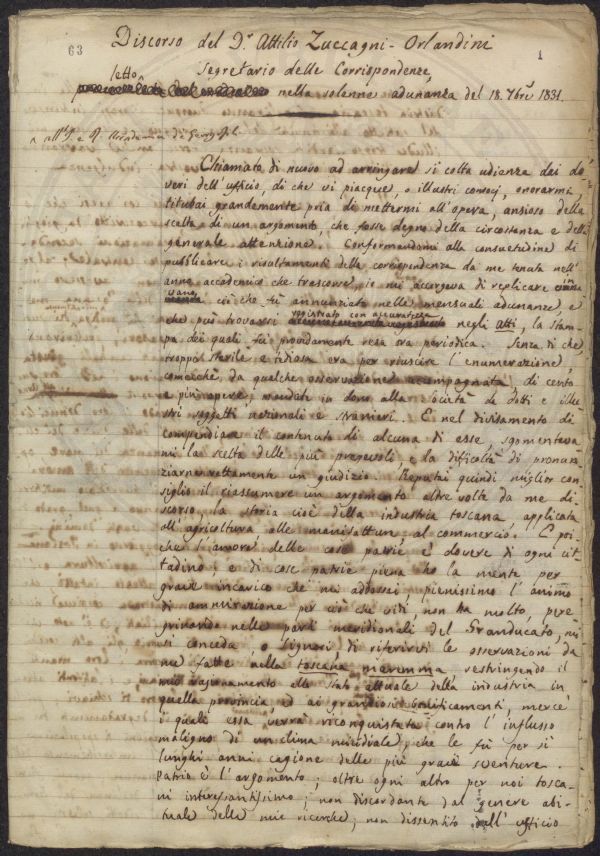 63
1
Discorso del Dr. Attilio Zuccagni-Orlandini
Segretario delle Corrispondenze,
letto
nella solenne adunanza del 18. 7bre 1831.
nell'I. e R. Accademia de' Georgofili
Chiamato di nuovo ad arringare sì colta udienza dai do-
veri dell'ufficio, di che vi piacque, o illustri consocj, onorarmi
titubai grandemente pria di mettermi all'opera, ansioso della
scelta di un argomento che fosse degno della circostanza e della
generale attenzione. Conformandomi alla consuetudine di
pubblicare i risultamenti della corrispondenza da me tenuta nell'
anno accademico che trascorse, io mi accorgeva di replicare in
vano ciò che fù annunziato nelle mensuali adunanze, e
che può trovarsi registrato con accuratezza negli Atti, la stam-
pa dei quali fù providamente resa ora periodica. Senza di che,
troppo sterile e tediosa era per riuscire l'enumerazione,
comecchè da qualche osservazione accompagnata, di cento
e più opere, mandate in dono alla Società da dotti e illu-
stri soggetti nazionali e stranieri. E nel divisamento di
compendiare il contenuto di alcuna di esse, sgomentava-
mi la scelta delle più pregevoli, e la difficoltà di pronun-
ziarne rettamente un giudizio. Reputai quindi miglior con-
siglio il riassumere un argomento altre volte da me di-
scorso, la storia cioè della industria toscana, applicata
all'agricoltura alle manifatture, al commercio. E poi-
chè l'amore delle cose patrie è dovere di ogni cit-
tadino; e di cose patrie piena ho la mente per
grave incarico che mi addossai, pienissimo l'animo
di ammirazione per ciò che vidi non ha molto, pere-
grinando nelle parti meridionali del Granducato, mi
si conceda, o Signori di riferirvi le osservazioni da
me fatte nella toscana maremma restringendo il
mio ragionamento allo stato attuale della industria in
quella provincia, ed ai grandiosi bonificamenti, mercè
i quali essa verrà riconquistata contro l'influsso
maligno di un clima micidiale, che le fù per sì
lunghi anni cagione delle più gravi sventure.
Patrio è l'argomento; oltre ogni altro per noi tosca-
ni interessantissimo; non discordante dal genere abi-
tuale delle mie ricerche; non dissentito dall'ufficio